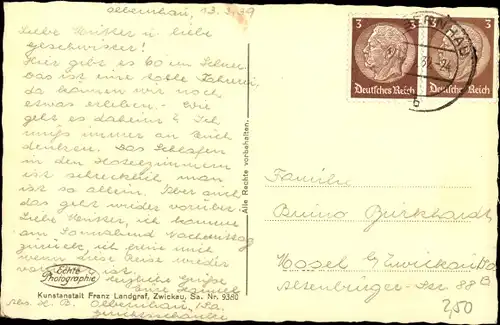 Olbernhau, 13.3.39
Liebe Mutter u. liebe
Geschwister!
Hier gibt es 60 cm Schnee.
Das ist eine tolle Fahrerei,
da können wir noch
etwas erleben. Wie
geht es daheim? Ich
muß immer an Euch
denken. Das Schlafen
in den Hotelzimmern
ist schrecklich man
ist so allein. Aber auch
das geht wieder vorüber.
Liebe Mutter, ich komme
am Sonnabend Nachmittag
zurück, ich freue mich
wenn diese Reise wieder
ist.
Herzliche Grüße
Echte
Photographie
Kunstanstalt Franz Landgraf, Zwickau, Sa. Nr. 9380
Abs. H. B. Olbernhau i/Sa.
Alle Rechte vorbehalten.
3
Deutsches Reich
3
Deutsches Reich
Familie
Bruno Burkhardt
Mosel (Zwickau Sa
Altenburger-Str 88 B
2,50